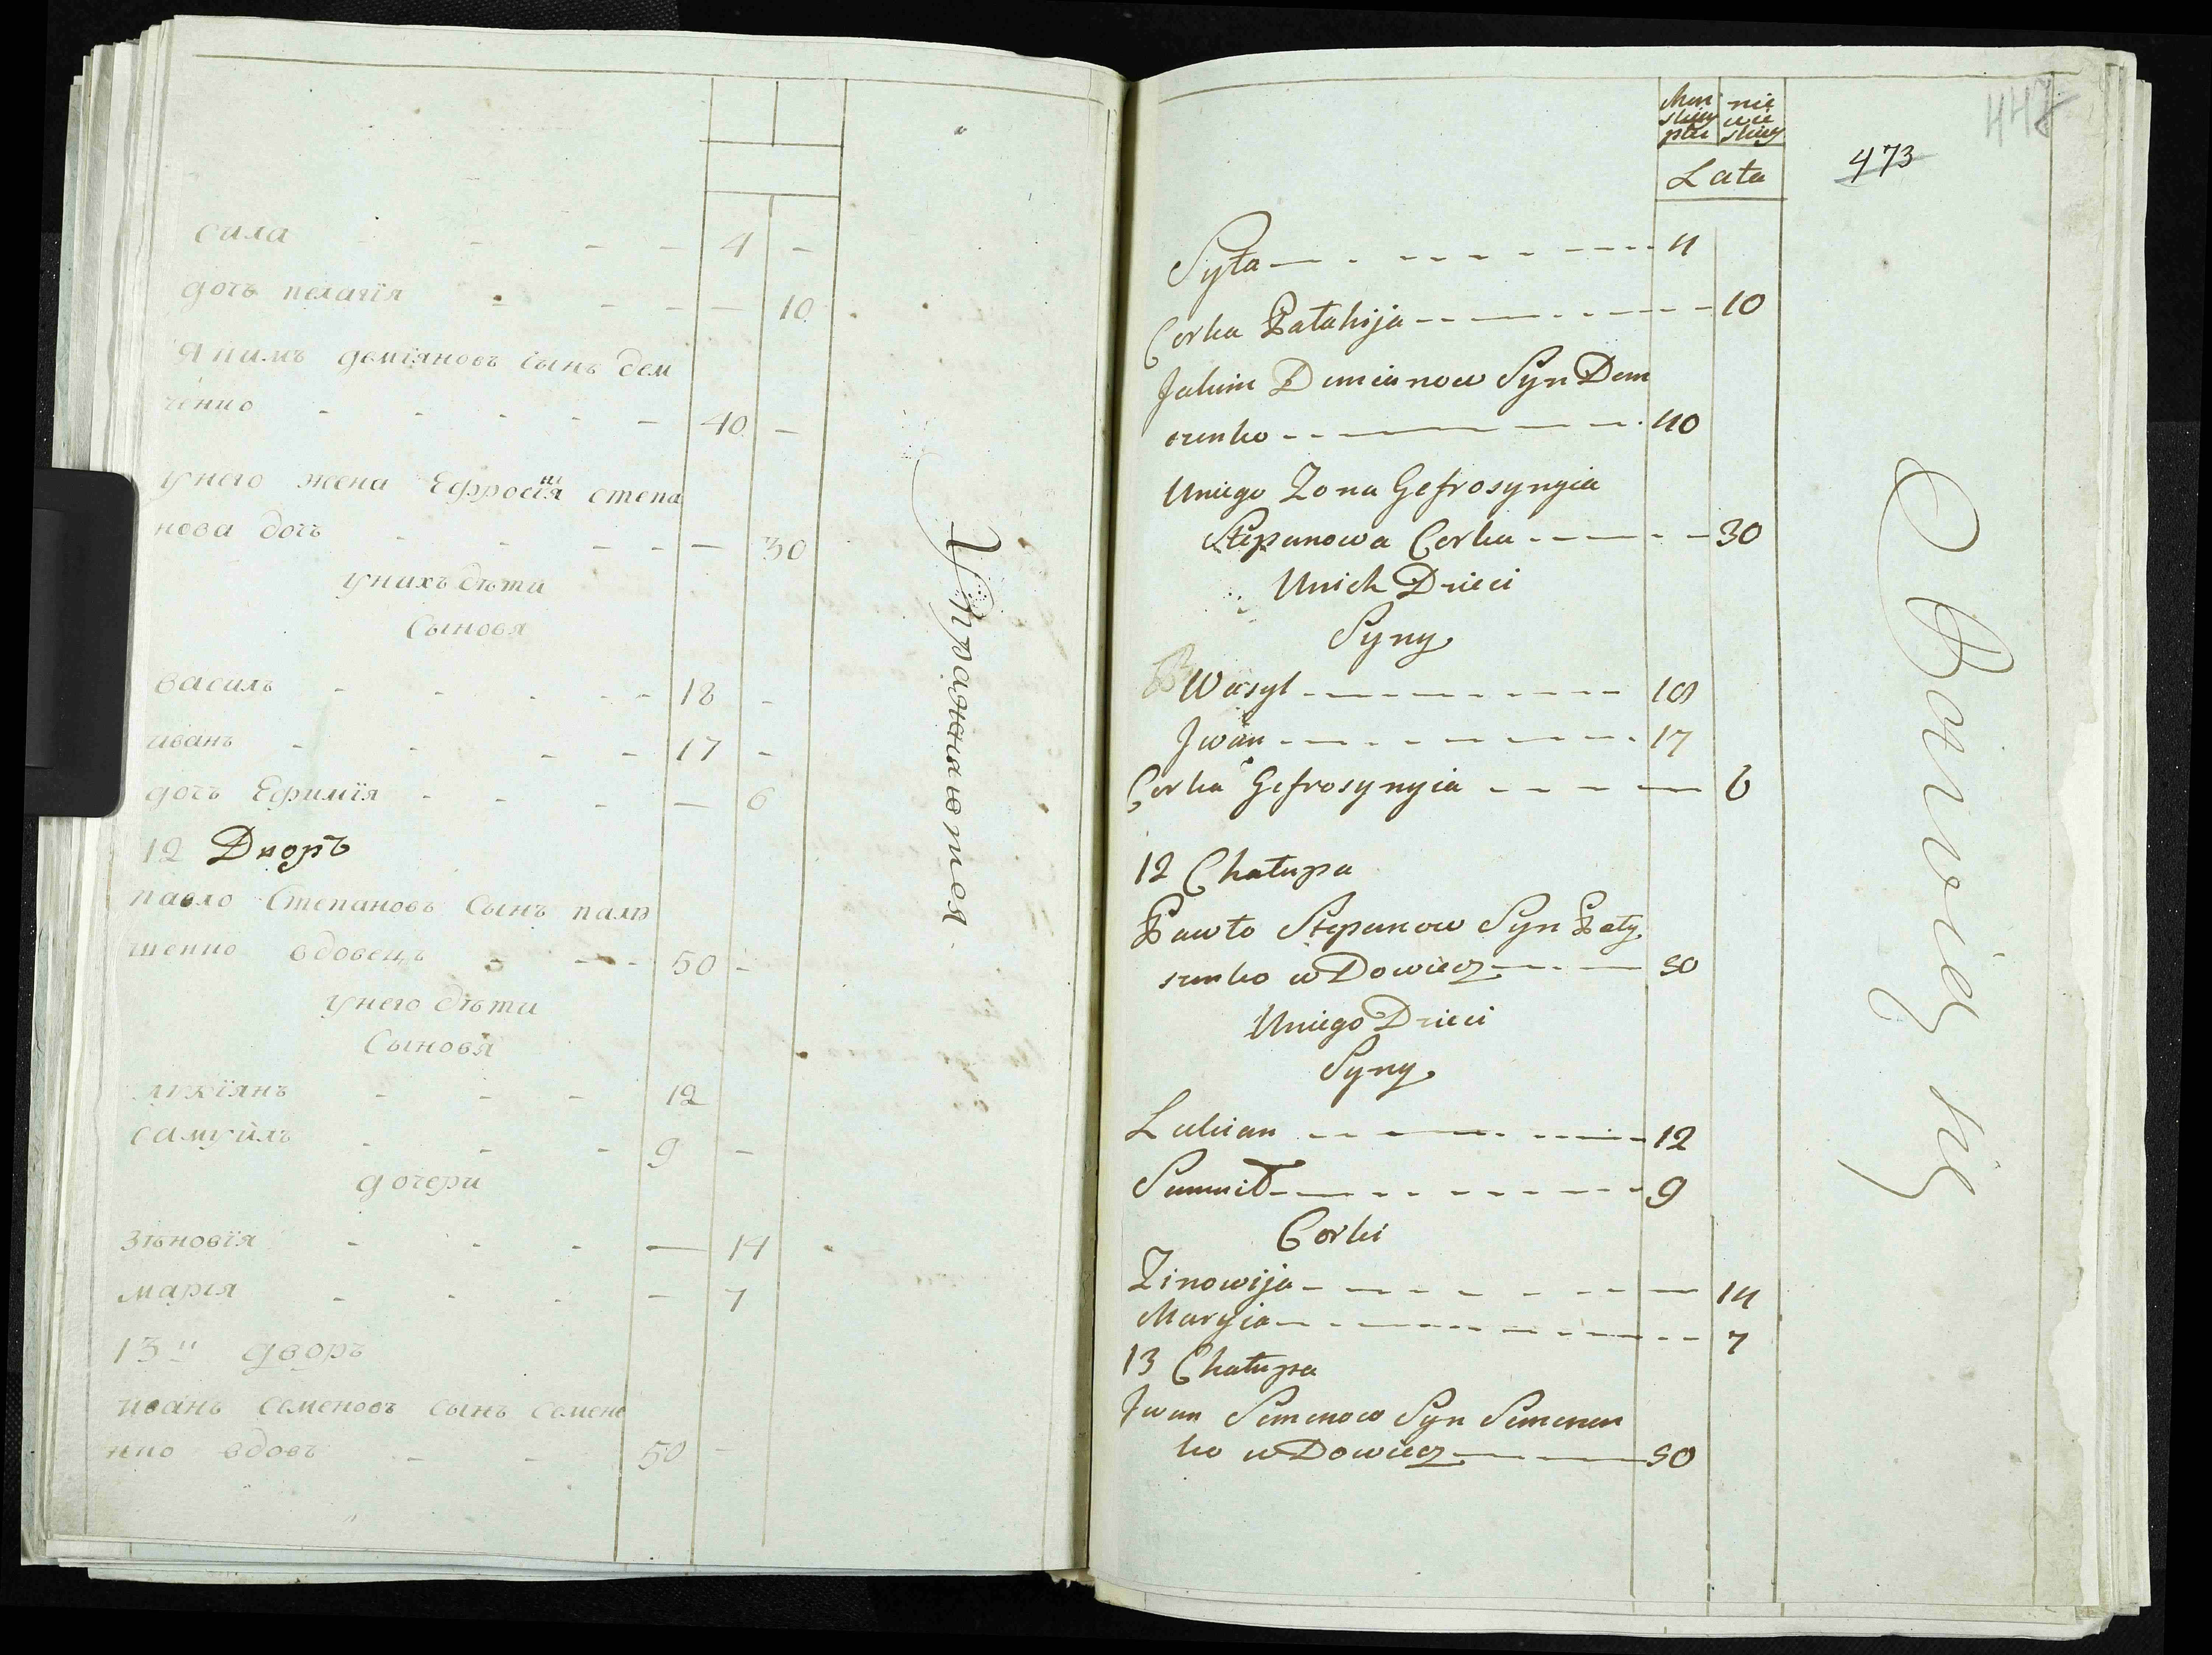 сила - - - 4 -
дочь пелагія - - - 10
Якимъ демїяновъ сынъ дем
ченко - - - - - 40 -
унего жена Ефросїнія степа
нова дочь - - - - 30
унихъ дѣти
Сыновя
василь - - - - 18 -
иванъ - - - - 17 -
дочь Ефимїя - - - - 6
12 Дворъ
павло Степановъ Сынъ палѣ
шенко вдовецъ - - - 50 -
унего дѣти
Сыновя
лукїянъ - - - 12
самуйлъ - - - 9 -
дочери
Зѣновїя - - - — 14
марїя - - - - 7
13й дворъ
иванъ семеновъ сынъ Семене
нко вдовъ - - 50 -
Упражняются
Men
skiey
płci
nie
wie
skiey
Lata
473
447
Syła - - - - - 4
Corka Pałahija - - - - - 10
Jakim Demianow Syn Dem
czenko - - - - - 40
Uniego Zona Gefrosyngia
Stepanowa Corka - - - - 30
Unich Dzieci
Syny
Wasyl - - - - - 18
Jwan - - - - - 17
Corka Gefrosynyia - - - — 6
12 Chałupa
Pawło Stepanow Syn Pały
szenko wDowiec - - - 50
Uniego Dzieci
Syny
Lukian - - - - - 12
Samuił - - - - - 9
Corki
Zinowija - - - - - 14
Maryia - - - - - 7
13 Chałupa
Jwan Semenow Syn Semenen
ko wDowiec - - - 50
Bawią się